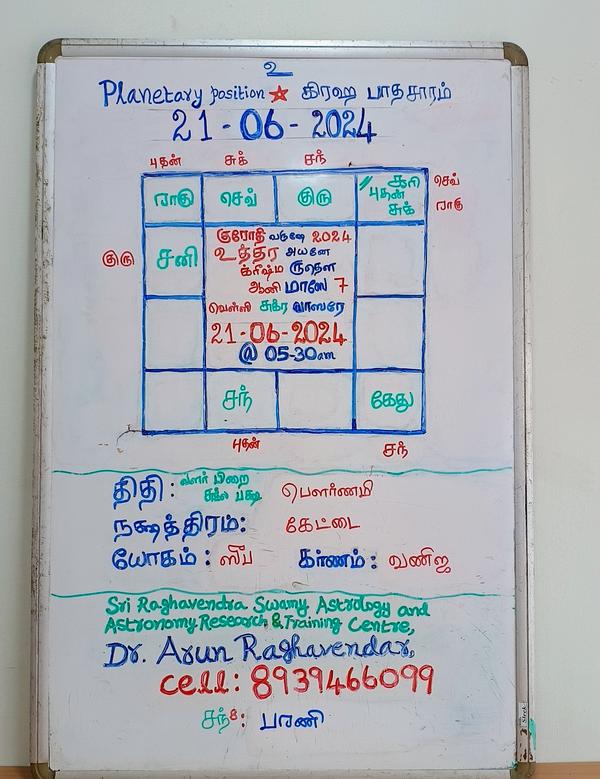 உ
Planetary position ☆ கிரஹ பாதசாரம்
21-06-2024
புதன் சுக் சந்
ராகு செவ் குரு சூரி புதன் சுக்
செவ்
ராகு
குரு சனி
குரோதி வருஷே 2024
உத்தர அயனே
க்ரிஷ்ம ருதௌ
ஆனி மாஸே 7
வெள்ளி சுக்ர வாஸரே
21-06-2024
@ 05-30am
சந் கேது
புதன் சந்
திதி: வளர் பிறை சுக்ல பக்ஷ பௌர்ணமி
நக்ஷத்திரம்: கேட்டை
யோகம்: ஸுப கர்ணம்: வணிஜ
Sri Raghavendra Swamy Astrology and
Astronomy Research & Training Centre,
Dr. Arun Raghavendar,
cell: 8939466099
சந்8: பரணி